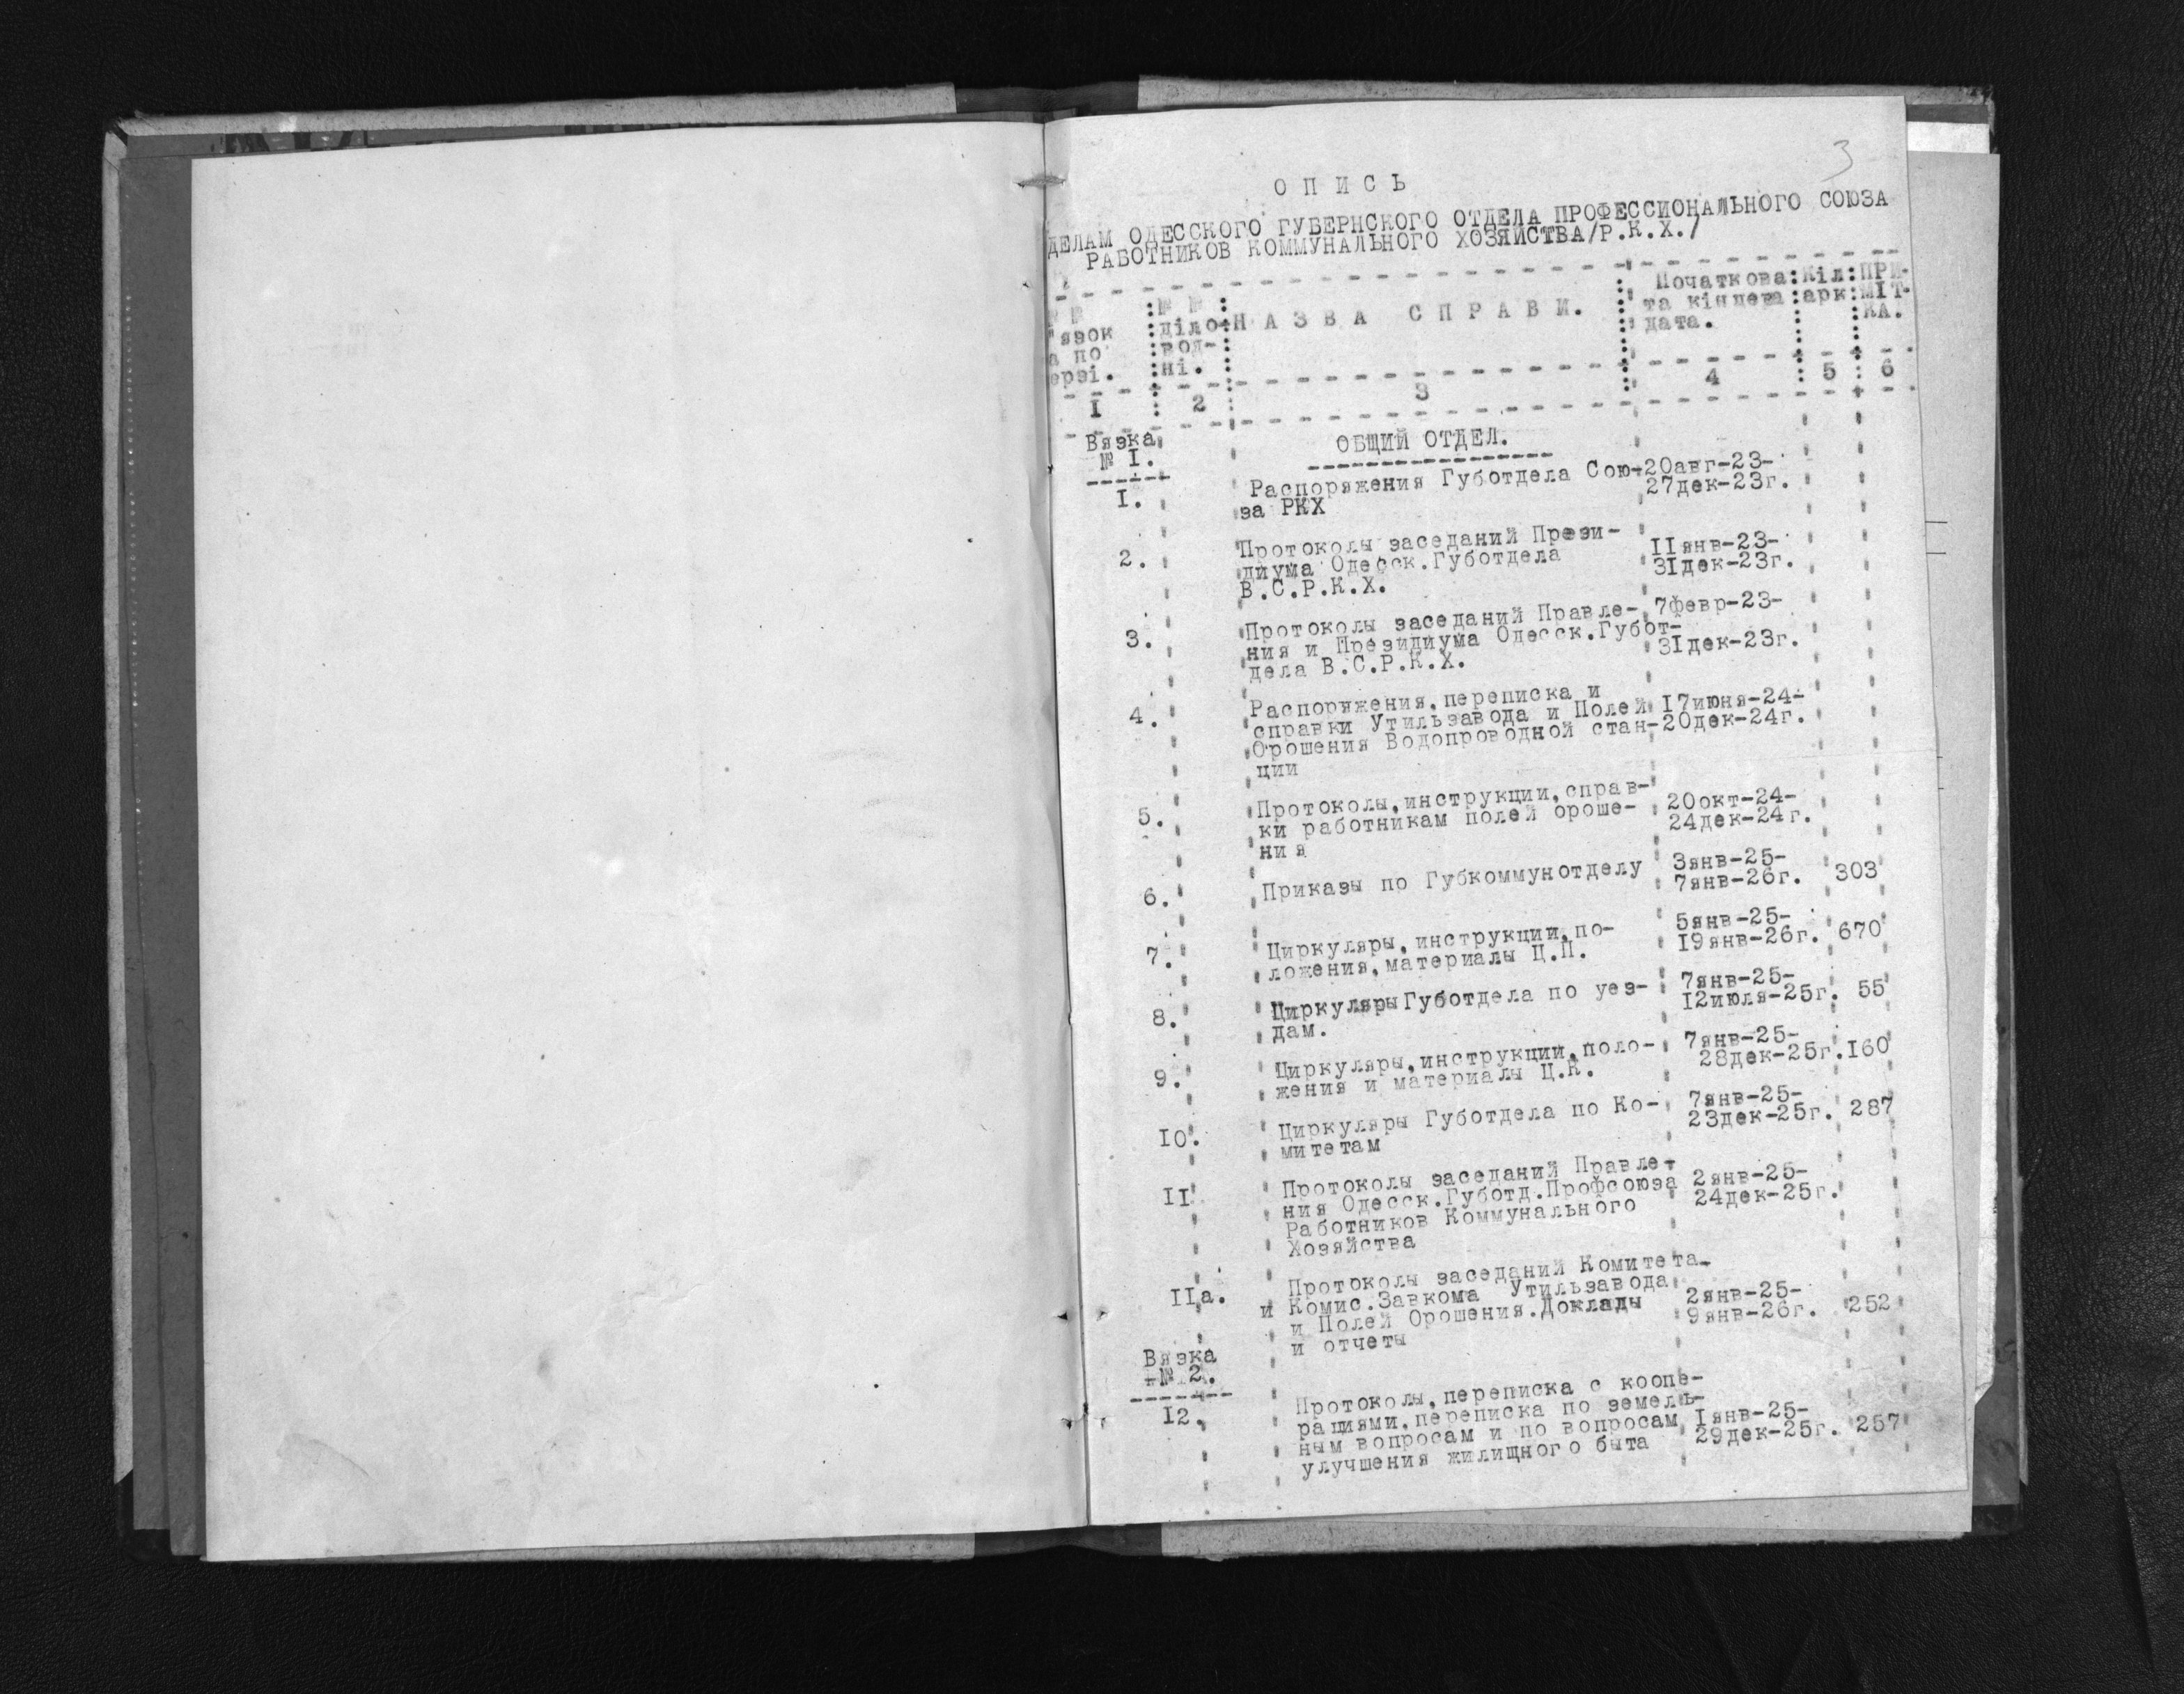 3
ОПИСЬ
ДЕЛАМ ОДЕССКОГО ГУБЕРНСКОГО ОТДЕЛА ПРОФЕССИОНАЛЬНОГО СОЮЗА
РАБОТНИКОВ КОММУНАЛЬНОГО ХОЗЯЙСТВА/Р.К.Х./
№ №
"язок
а по
ерзі.
№ №
діло-
вод-
ні.
НАЗВА СПРАВИ.
Початкова
та кінцева
дата.
Кіл
арк
ПРИ-
МІТ-
КА.
I 2 3 4 5 6
Вязка
№ I.
ОБЩИЙ ОТДЕЛ.
I. Распоряжения Губотдела Сою- 20авг-23-
за РКХ 27дек-23г.
2. Протоколы заседаний Прези- IIянв-23-
диума Одесск.Губотдела 3Iдек-23г.
В.С.Р.К.Х.
3. Протоколы заседаний Правле- 7февр-23-
ния и Президиума Одесск.Губот- 3Iдек-23г.
дела В.С.Р.К.Х.
4. Распоряжения,переписка и
справки Утильзавода и Полей I7июня-24-
Орошения Водопроводной стан- 20дек-24г.
ции
5. Протоколы,инструкции,справ- 20окт-24-
ки работникам полей ороше- 24дек-24г.
ния
6. Приказы по Губкоммунотделу 3янв-25-
7янв-26г. 303
7. Циркуляры,инструкции,по- 5янв-25-
ложения,материалы Ц.П. I9янв-26г. 670
8. ЦиркулярыГуботдела по уез- 7янв-25-
дам. I2июля-25г. 55
9. Циркуляры,инструкции,поло- 7янв-25-
жения и материалы Ц.К. 28дек-25г. I60
I0. Циркуляры Губотдела по Ко- 7янв-25-
митетам 23дек-25г. 287
II Протоколы заседаний Правле-
ния Одесск.Губотд.Профсоюза 2янв-25-
Работников Коммунального 24дек-25г.
Хозяйства
IIа. Протоколы заседаний Комитета
и Комис.Завкома Утильзавода 2янв-25-
и Полей Орошения.Доклады 9янв-26г. 252
и отчеты
Вязка
№ 2.
I2. Протоколы,переписка с коопе-
рациями,переписка по земель-
ным вопросам и по вопросам Iянв-25-
улучшения жилищного быта 29дек-25г. 257